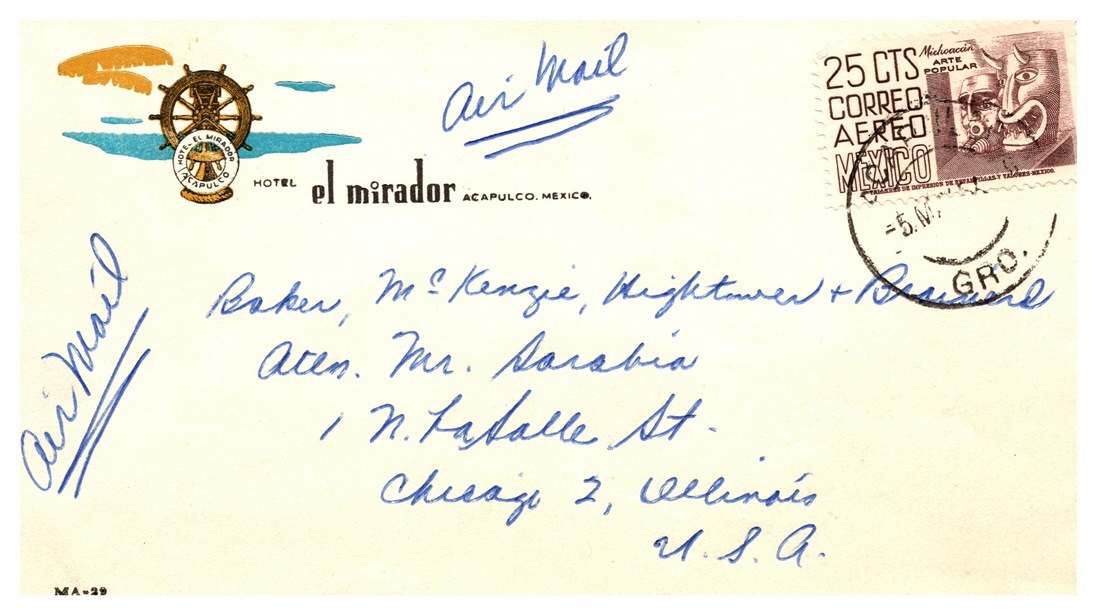 Air Mail
25 CTS
CORREO
AEREO
MEXICO
Michoacán
ARTE
POPULAR
TALLERES DE IMPRESION DE ESTAMPILLAS Y VALORES-MEXICO.
HOTEL EL MIRADOR
ACAPULCO
HOTEL el mirador ACAPULCO. MEXICO.
-5. M
GRO.
Air Mail
Baker, McKenzie, Hightower + Brainerd
Atten. Mr. Sarabia
1 N. LaSalle St.
Chicago 2, Illinois
U. S. A.
MA-29